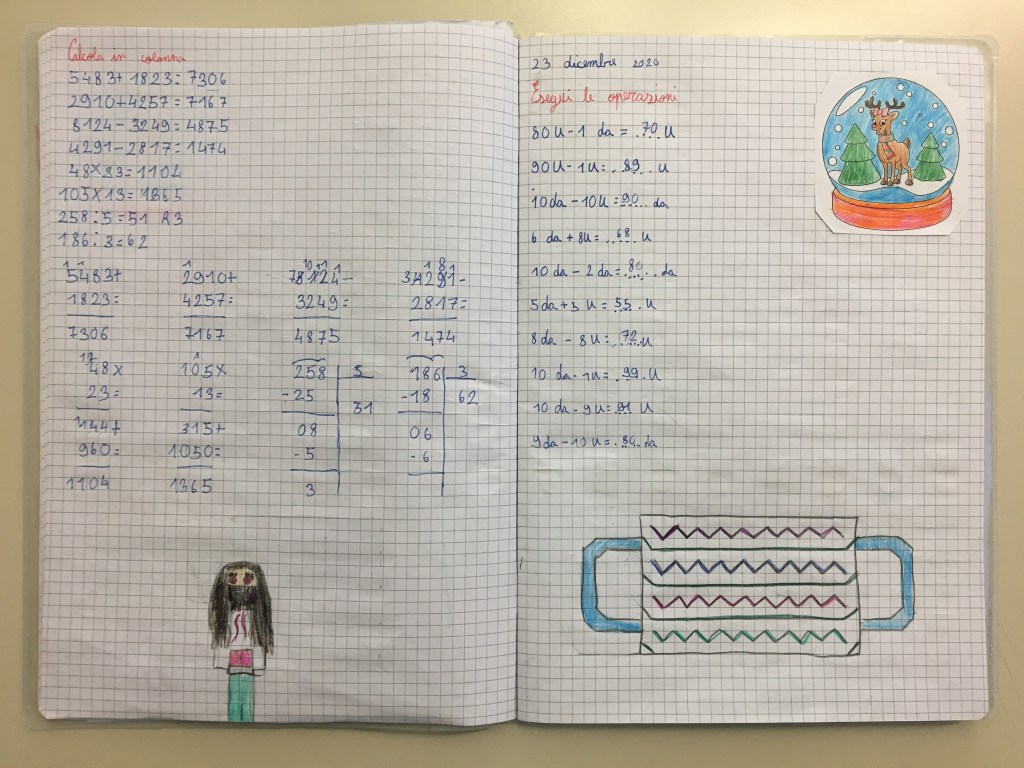 Calcola in colonna
5483+ 1823= 7306
2910+4257=7167
8124-3249=4875
4291-2817=1474
48×23=1104
105×13=1365
258:5=51 R3
186:3=62
5483+
1823=
7306
2910+
4257=
7167
8124-
3249=
4875
4291-
2817=
1474
48×
23=
144+
960=
1104
105×
13=
315+
1050=
1365
258 5
-25 51
08
-5
3
186 3
-18 62
06
-6
23 dicembre 2020
Esegui le operazioni
80u-1 da = 70 u
90u-1u= 89 u
10da-10u= 90 da
6 da+8u= 68 u
10 da-2 da= 80 da
5da+5 u= 55 u
8da - 8u= 72 u
10 da-1u= 99 u
10 da-9u= 91 u
9da-10u= 80 da